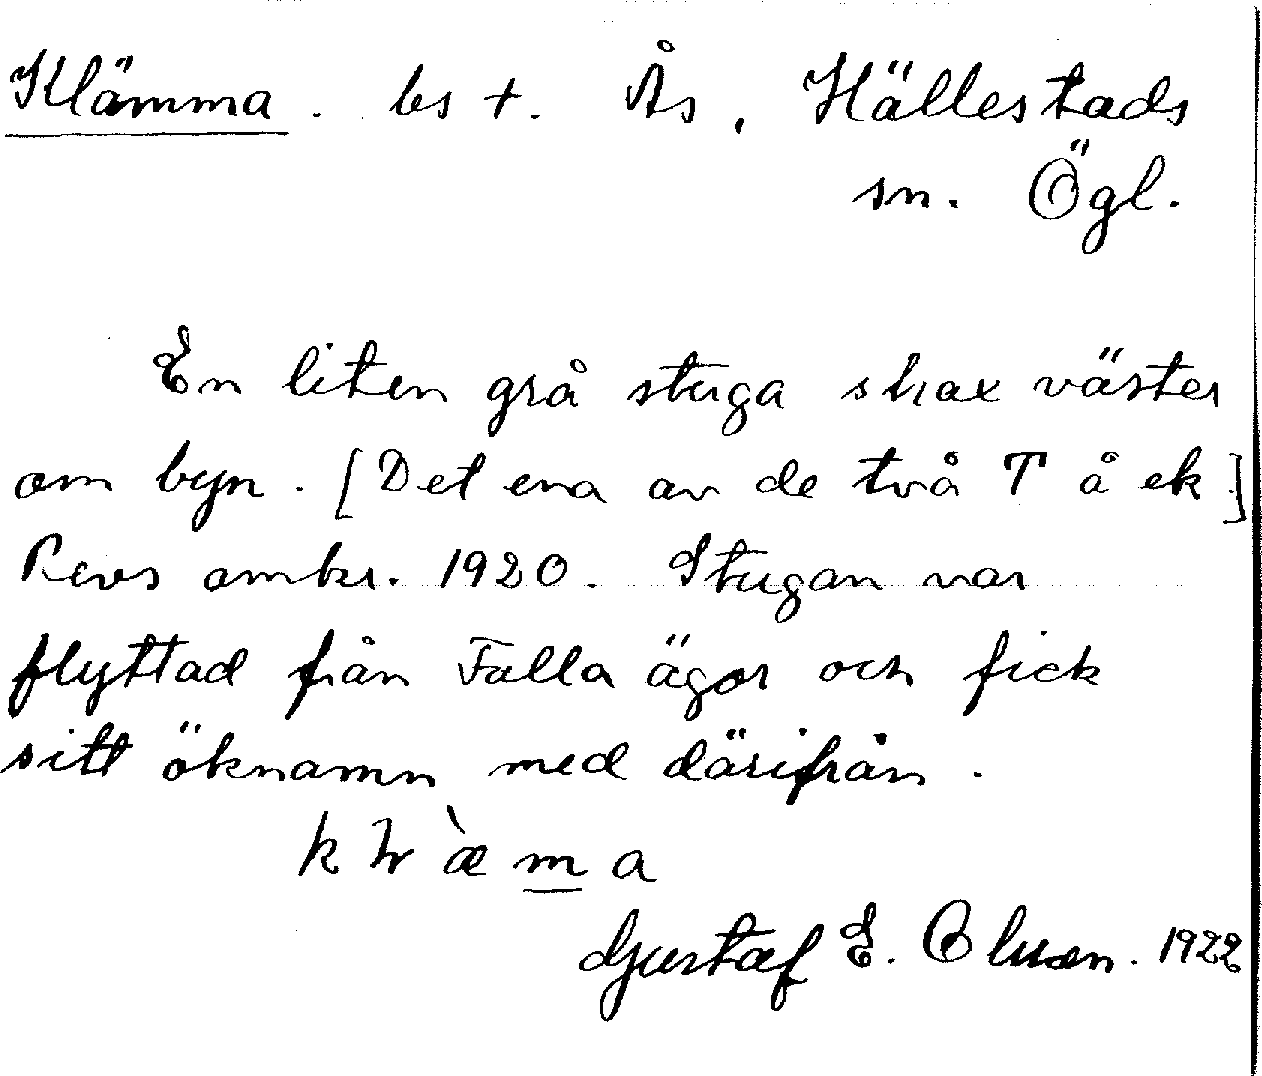 Klämma. bs t. Ås, Hällestads
sn. Ögl.
En liten grå stuga strax väster
om byn. [Det ena av de två T å ek]
Revs omkr. 1920. Stugan var
flyttad från Falla ägor och fick
sitt öknamn med därifrån.
k æ̀ m a
Gustaf E. 1922